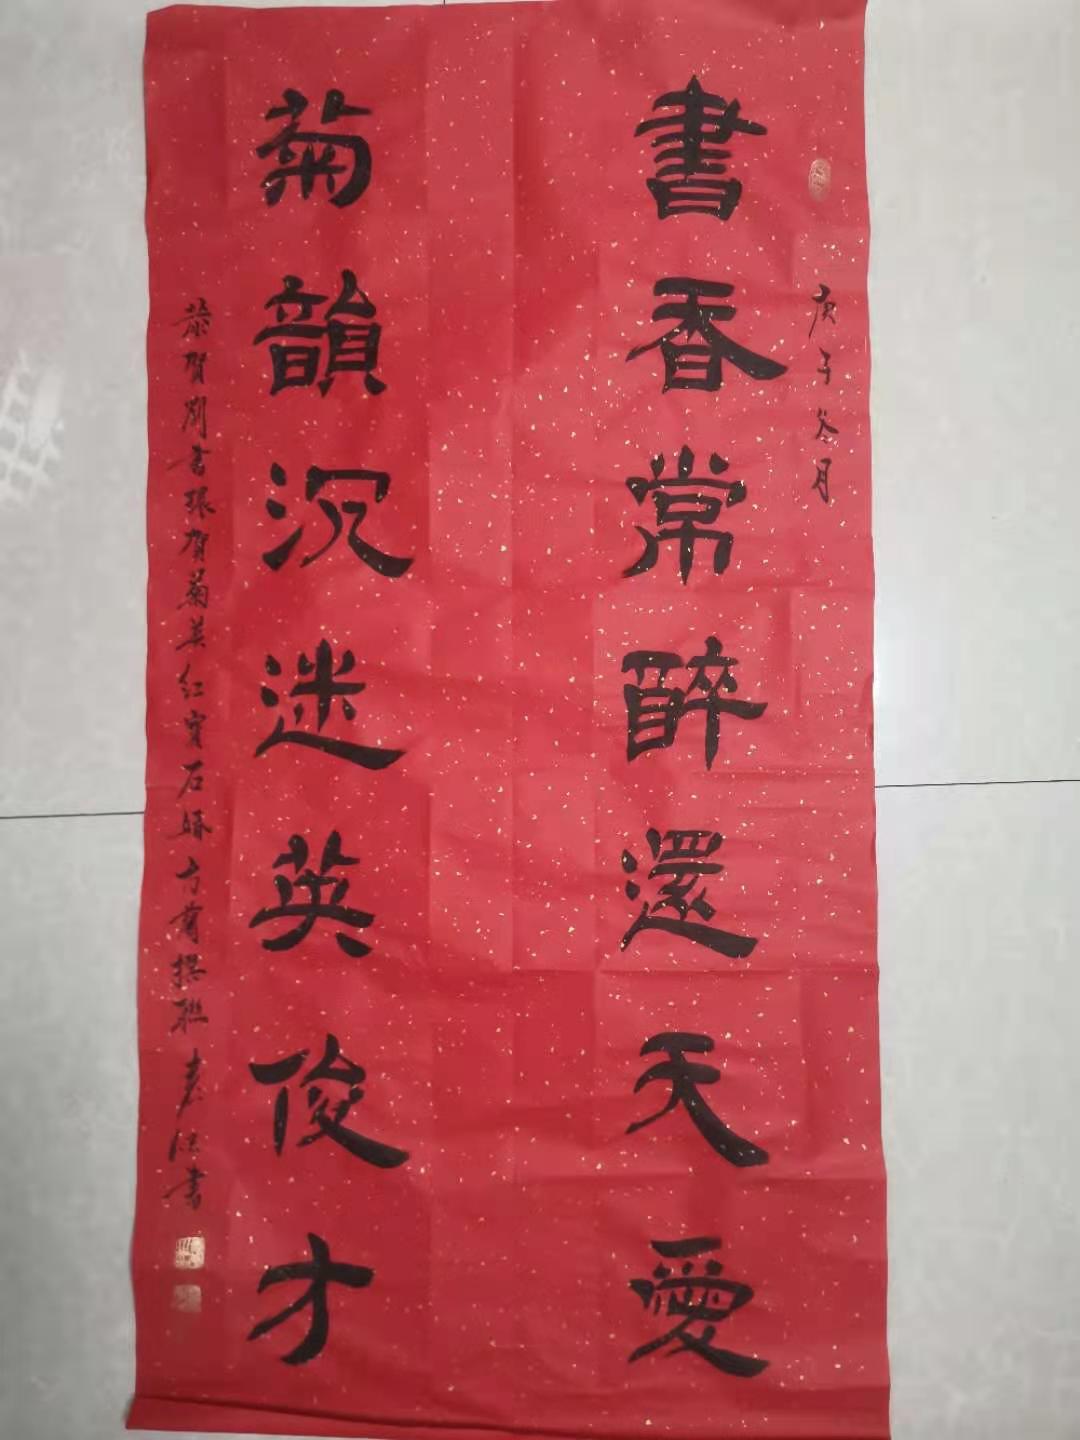 庚子冬月
書香常醉還天愛
菊韻沉迷英俊才
恭賀劉書張賀菊英红寶石婚方育撰聯 書